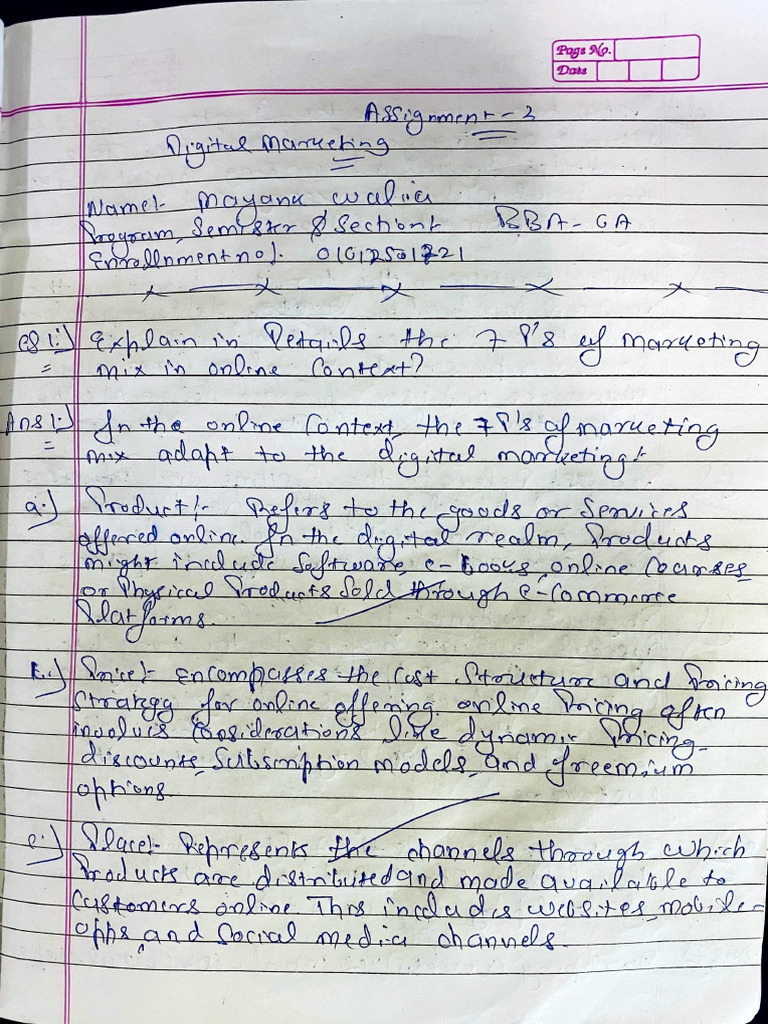 Page No.
Date
Assignment - 2
Digital Marketing
Name:- Mayank Walia
Program, Semister & Section:- BBA - 6A
Enrollnment no:.
Qs 1:) Explain in Details the 7 P's of marketing
mix in online Context?
Ans 1:) In the online Context, the 7 P's of marketing
mix adapt to the digital marketing:-
a:) Product:- Refers to the goods or Services
offered online. In the digital realm, Products
might include Software, e-books, online Courses,
or Physical Products Sold through e-Commerce
Platforms.
b:) Price:- encompasses the Cost Structure and Pricing
Strategy for online offering. online Pricing often
involves Considerations like dynamic Pricing,
discounts, Subscription models, and freemium
options.
c:) Place:- Represents the channels through which
Products are distributed and made available to
Customers online. This includes websites, mobile-
apps, and Social media channels.